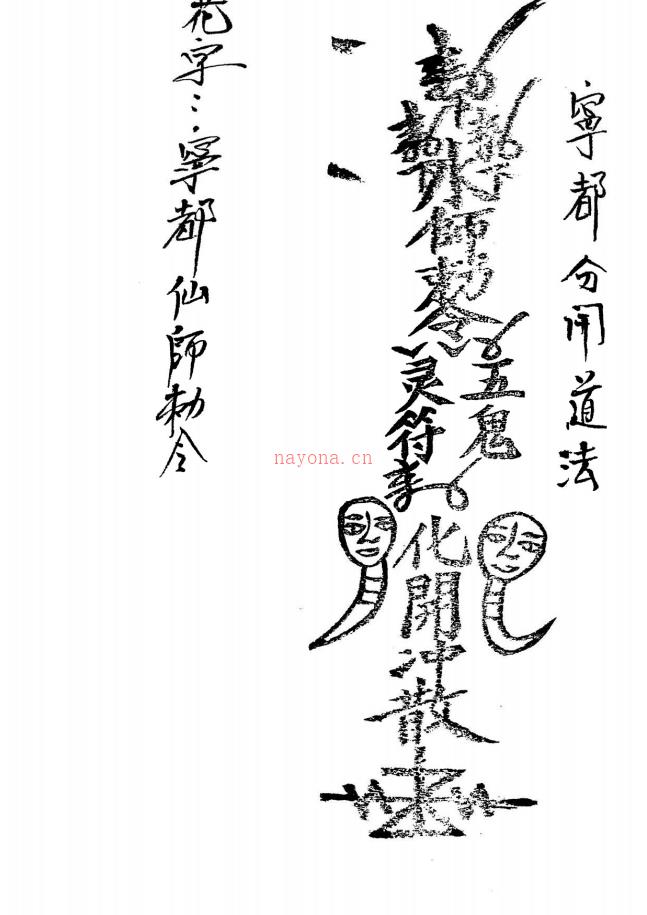 寧都分開道法
師勅令
五鬼
灵符
化開冲散
花字：寧都仙師勅令
nayona.cn